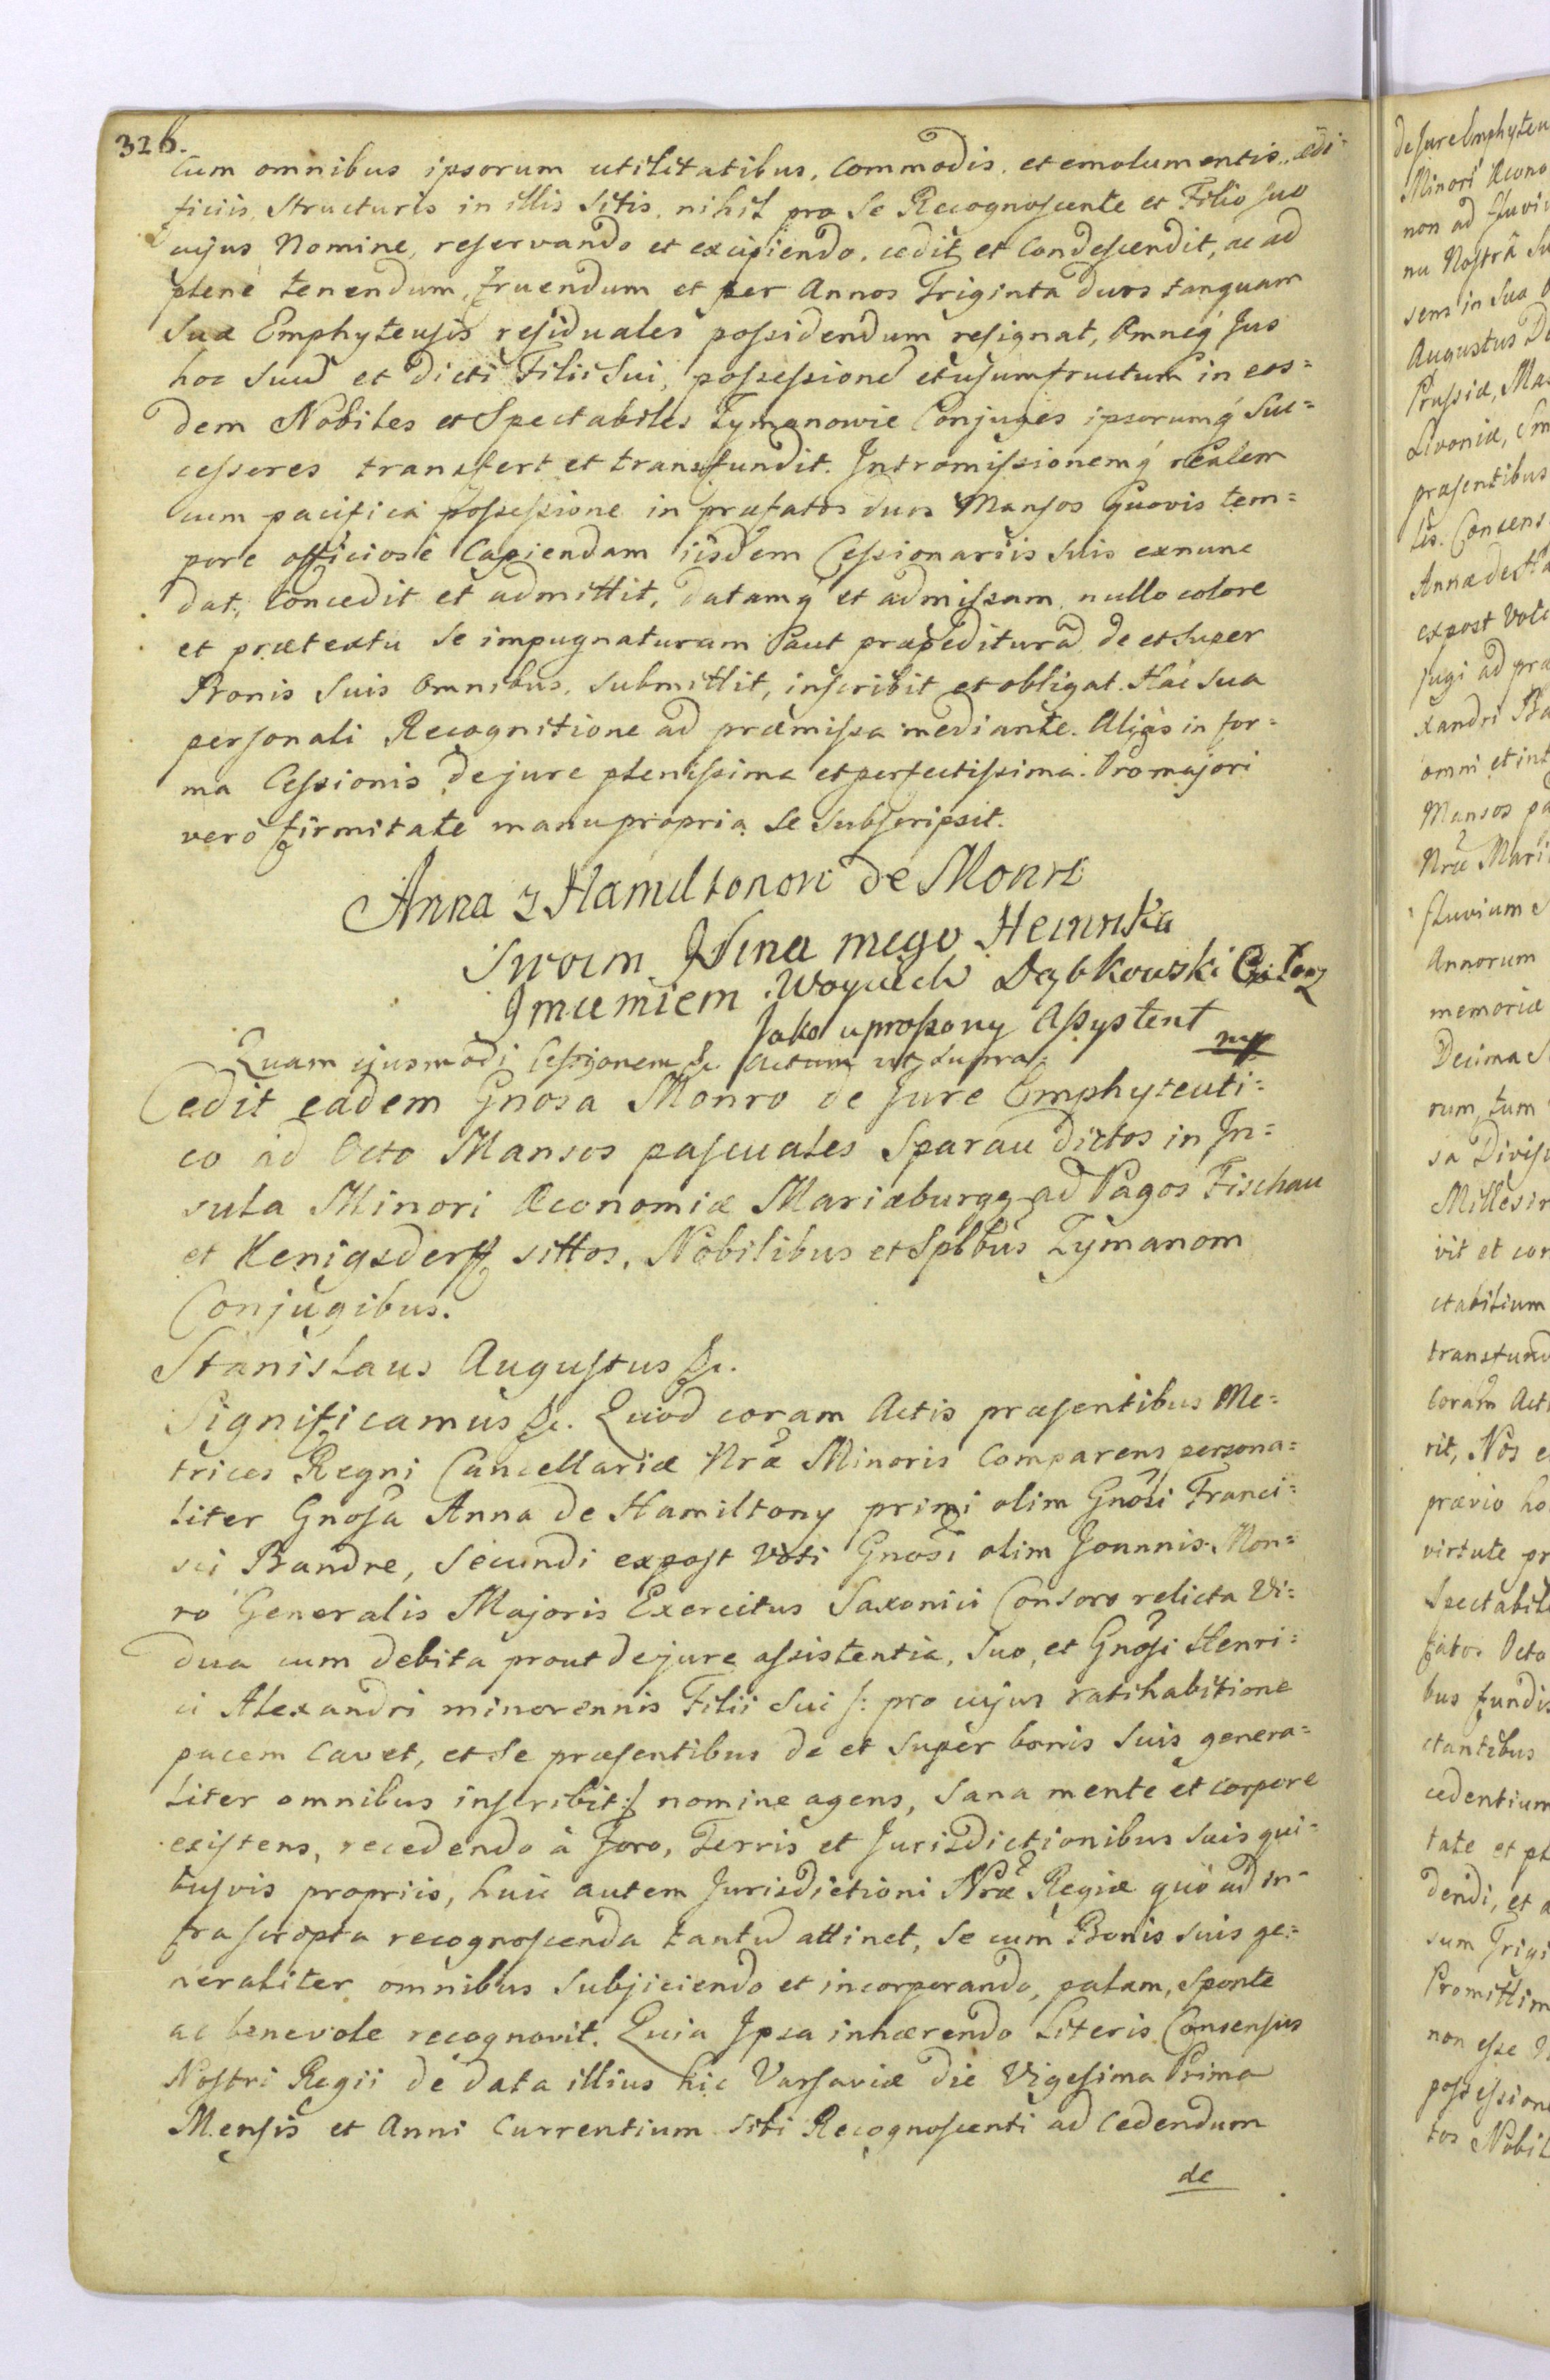 326.
Cum omnibus ipsorum utilitatibus, Commodis, et emolumentis, ædi-
ficiis, Structuris in illis Sitis, nihil pro Se Recognoscente et Filio suo
cujus Nomine, reservando et excipiendo, cedit et Condescendit, ac ad
plenè tenendum, fruendum et per Annos Triginta duos tanquam
Suæ Emphyteusis residuales possidendum resignat, Omneq́ Jus
hoc Suũ et dicti Filii Sui, possessionẽ et usumfructum in eos=
dem Nobiles et Spectabiles Tymanowie Conjuges ipsorumq́ Suc=
cessores transfert et transfundit. Intromissionemq́ realem
cum pacifica possessione in præfatos duos Mansos Quovis tem=
pore officiosè Capiendam iisdem Cessionariis suis exnunc
dat, Concedit et admittit, datamq́ et admissam, nullo colore
et prætextu se impugnaturam aut præpediturã de et super
Bonis Suis Omnibus, submittit, inscribit et obligat. Hác sua
personali Recognitione ad præmissa mediante. Aliàs in for=
ma Cessionis de jure plenissima et perfectissima. Pro majori
verò firmitate manu propria se subscripsit.
Anna z Hamiltonow de Monro
Swoim J Sina mego Heinrika
Jmieniem. Woyciech Dąbkowski
Jako uproszony Assystent
mp
Quam ejusmodi Cessionem &c. Actum ut supra.
Cedit eadem Gnosa Monro de Jure Emphyteuti=
co ad Octo Mansos pascuales Sparau dictos in In=
sula Minori Œconomiæ Mariæburgg. ad Pagos Fischau
et Kenigsderff sittos, Nobilibus et Splbus Tymanom
Conjugibus.
Stanislaus Augustus &c.
Significamus &c. Quod coram Actis præsentibus Me=
trices Regni Cancellariæ Nræ Minoris Comparens persona=
liter Gnosa Anna de Hamiltony primi olim Gnosi Franci=
sci Bandre, Secundi expost Voti Gnosi olim Joannis Mon=
ro Generalis Majoris Exercitus Saxonici Consors relicta Vi=
dua cum debita prout de jure assistentia, Suo, et Gnosi Henri=
ci Alexandri minorennis Filii Sui /: pro cujus ratihabitione
pacem Cavet, et Se præsentibus de et super bonis Suis genera=
liter omnibus inscribit :/ nomine agens, Sana mente et Corpore
existens, recedendo à Foro, Terris et Jurisdictionibus suis qui=
busvis propriis, huic autem Jurisdictioni Nræ Regiæ quò ad in-
frascripta recognoscenda tantũ attinet, Se cum Bonis suis ge=
neraliter omnibus Subjiciendo et incorporando, palam, Sponte
ac benevole recognovit. Quia Ipsa inhærendo Literis Consensus
Nostri Regii de data illius hic Varsaviæ die Vigesima Prima
Mensis et Anni Currentium Sibi Recognoscenti ad Cedendum
de
de Jure Emphyteu
Minori Œcono
non ad fluviu
nu Nostrâ
sens in Sua
Augustus De
Prussiæ, Mas
Livoniæ, Sm
præsentibus
Consens
Annæ de Ha
expost Voti
jugi ad præ
xandri Ba
omni et int
Mansos pa
Nræ Mari
fluvium
Annorum
memoriæ
Decima S
rum, tum
sa Divisi
Millesim
vit et con
ctabilium
transfund
Coram Acti
rit, Nos e
prævio ho
virtute pr
Spectabile
fatos Octo
bus fundis
ctantibus
cedentium
tate et pl
dendi, et a
sum Trigi
Promittim
non esse
possession
tos Nobil